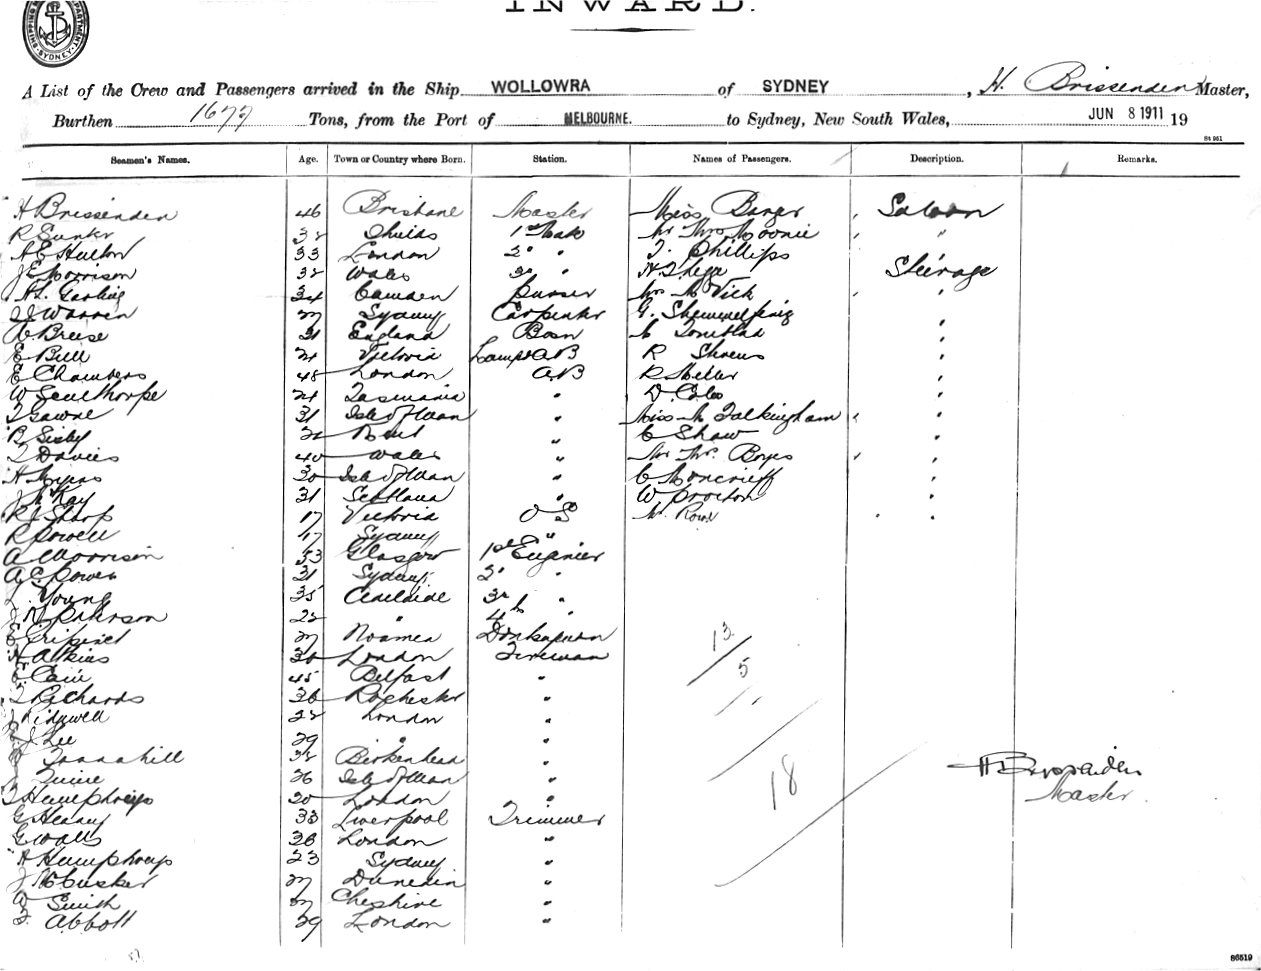 INWARD.
SYDNEY
A List of the Crew and Passengers arrived in the Ship WOLLOWRA of SYDNEY, H. Brissenden Master,
Burthen 1677 Tons, from the Port of MELBOURNE. to Sydney, New South Wales, JUN 8 1911 19
St 951
Seamen's Names. Age. Town or Country where Born. Station. Names of Passengers. Description. Remarks.
H Brissenden 46 Brisbane Master Miss Banger Saloon
R 38 Shields 1st Mate Mr Mrs Moonie "
A E Hulton 33 London 2 " T. Phillips
J E Morrison 38 Wales 3 " H Steerage
H L Garling 34 Camden Purser Mrs Mc Vick "
J J Warren 27 Sydney Carpenter G. "
A Breese 31 England Bosn C "
E Bull 24 Victoria Lamps AB R Stevens "
E Chambers 48 London AB R Heller "
W Sculthorpe 24 Tasmania " D. Coles "
T Gawne 31 Isle of Man " Miss M Falkingham "
B Sisby Kent " C Shaw "
T Davies 40 Wales " Mr Mrs Boyes "
H 30 Isle of Man " C Moncrieff "
J McKay 31 Scotland " W Procton "
R J Sharp 17 Victoria O S Mr Rowe "
R Powell 17 Sydney "
A Morrison 53 Glasgow 1st Engenier
A C Power 31 Sydney 2 "
L. Young 35 Adelaide 3rd "
J N Paterson 28 " 4th "
E 27 Noumea Donkeyman
H Atkins 30 London Fireman
E Cain 45 Belfast "
T Richards 36 Rochester "
J Ridgwell 28 London "
J Lee 29 " "
Tannahill 38 Birkenhead "
Quine 26 Isle of Man "
T Humphreys 20 London "
G Heany 33 Liverpool Trimmer
G Watts 26 London "
A Humphreys 23 Sydney "
J McCusker 27 Dunedin "
A Smith 27 Cheshire "
F Abbott 29 London "
13
5
18
H Brissenden
Master
86519